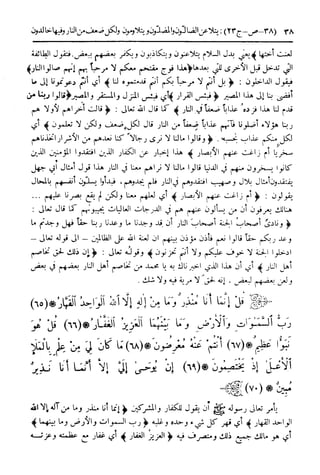 ٣٨ (٣٨—ص—ج٢٣) : يتلاعن الضالون والمضلون ويلومون ولكل ضعف من النار وفيها خالدون
لعنت أختها ﴾ يعني بدل السلام يتلاعنون ويتكاذبون ويكفر بعضهم ببعض. فتقول الطائفة
التي تدخل قبل الأخرى للتي بعدها ﴿ هذا فوج مقتحم معكم لا مرحباً بهم إنهم صالوا النار ﴾
فيقول الداخلون: ﴿ بل أنتم لا مرحباً بكم أنتم قدمتموه لنا ﴾ أي أنتم دعوتمونا إلى ما
أفضى بنا إلى هذا المصير ﴿ فبئس القرار ﴾ أي فبئس المنزل والمستقر والمصير ﴿ قالوا ربنا من
قدم لنا هذا فزده عذاباً ضعفاً في النار ﴾ كما قال الله تعالى: ﴿ قالت أخراهم لأولاهم
ربنا هؤلاء أضلونا فآتهم عذاباً ضعفاً من النار قال لكل ضعف ولكن لا تعلمون ﴾ أي
لكل منكم عذاب بحسبه. ﴿ وقالوا مالنا لا نرى رجالاً كنا نعدهم من الأشرار أتخذناهم
سخرياً أم زاغت عنهم الأبصار ﴾ هذا إخبار عن الكفار الذين افتقدوا المؤمنين الذين
كانوا يسخرون منهم في الدنيا فقالوا مالنا لا نراهم معنا في النار هذا قول أمثال أبي جهل
يفتقدون أمثال بلال وصهيب افتقدوهم في النار فلم يجدوهم، فبدأوا يسلون أنفسهم بالمحال
يقولون: ﴿ أم زاغت عنهم الأبصار ﴾ أي لعلهم معنا ولكن لم يقع بصرنا عليهم ...
هنالك يعرفون أن من يسألون عنهم هم في الدرجات العاليات يجيبونهم كما قال تعالى:
﴿ ونادى أصحاب الجنة أصحاب النار أن قد وجدنا ما وعدنا ربنا حقاً فهل وجدتم ما
وعد ربكم حقاً قالوا نعم فأذن مؤذن بينهم أن لعنة الله على الظالمين — الى قوله تعالى —
ادخلوا الجنة لا خوف عليكم ولا أنتم تحزنون ﴾ وقوله تعالى: ﴿ إن ذلك لحق تخاصم
أهل النار ﴾ أي أن هذا الذي أخبرناك به يا محمد من تخاصم أهل النار بعضهم في بعض
ولعن بعضهم لبعض. إنه لحق لا مرية فيه ولا شك.
﴿ قُلْ إِنَّمَا أَنَا مُنذِرٌ وَمَا مِنْ إِلَهٍ إِلاَّ اللَّهُ الْوَاحِدُ الْقَهَّارُ ﴾ (٦٥)
رَبُّ السَّمَوَاتِ وَالأَرْضِ وَمَا بَيْنَهُمَا الْعَزِيزُ الْغَفَّارُ ﴾ (٦٦) قُلْ هُوَ
نَبَؤٌا عَظِيمٌ ﴾ (٦٧) أَنتُمْ عَنْهُ مُعْرِضُونَ ﴾ (٦٨) مَا كَانَ لِيَ مِنْ عِلْمٍ بِالْمَلإِ
الأَعْلَى إِذْ يَخْتَصِمُونَ ﴾ (٦٩) إِن يُوحَى إِلَيَّ إِلاَّ أَنَّمَا أَنَا نَذِيرٌ
مُّبِينٌ ﴾ (٧٠)
يأمر تعالى رسوله ﷺ أن يقول للكفار والمشركين ﴿ إنما أنا منذر وما من إله إلا الله
الواحد القهار ﴾ أي قهر كل شيء وحده وغلبه ﴿ رب السموات والأرض وما بينهما ﴾
أي هو مالك جميع ذلك ومتصرف فيه ﴿ العزيز الغفار ﴾ أي غفار مع عظمته وعزته